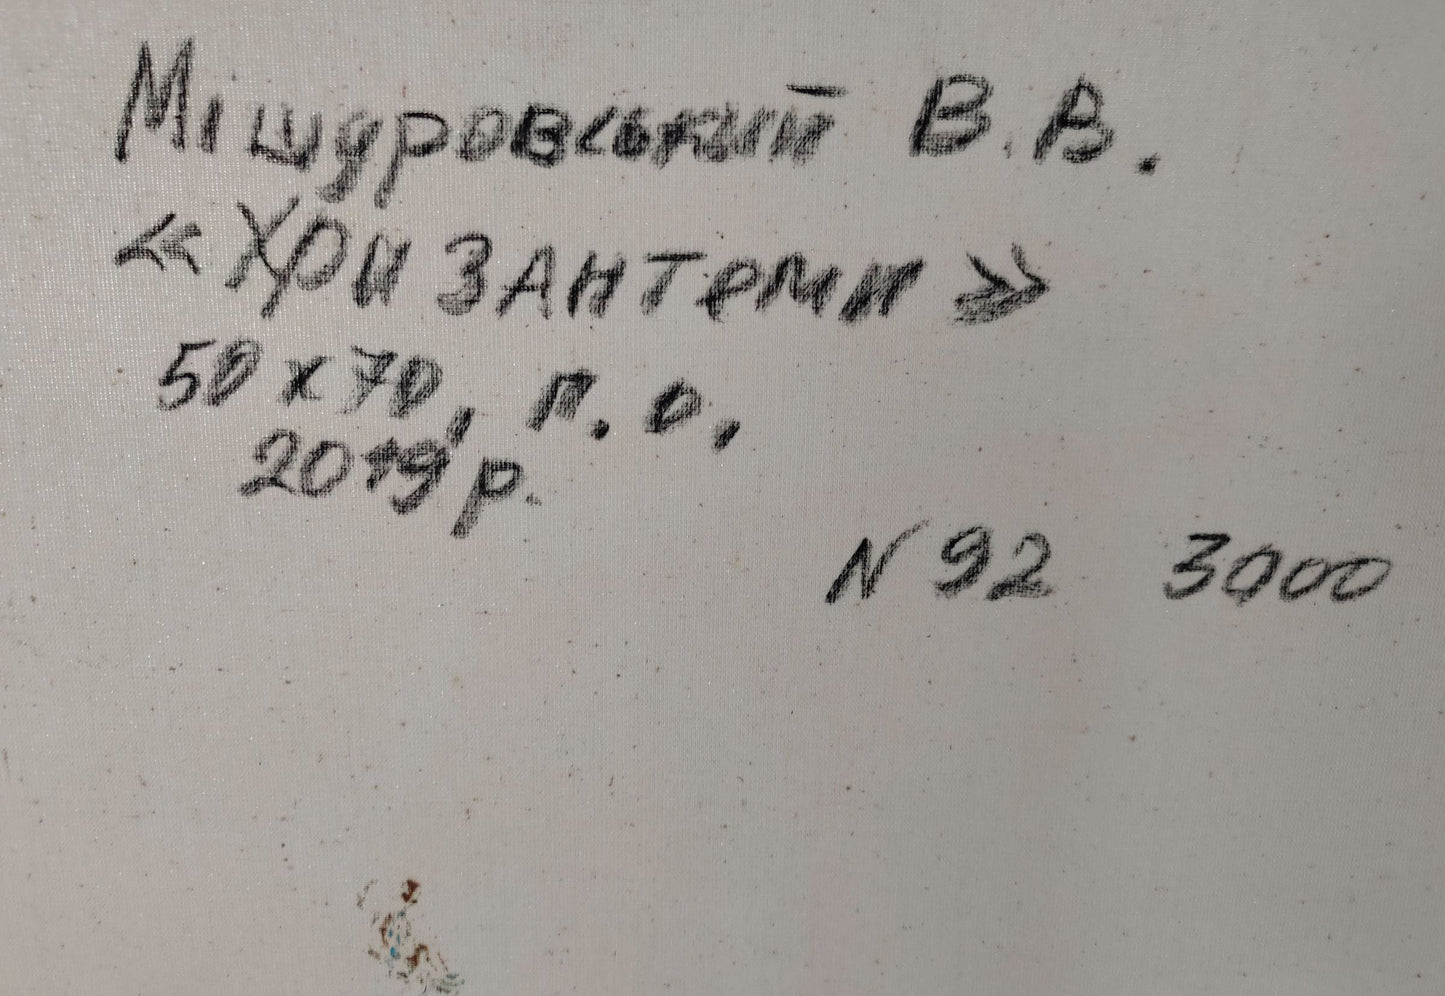 Мішуровський В. В.
«ХРИЗАНТЕМИ»
50х70, п. о.
2019 р.
N 92 3000